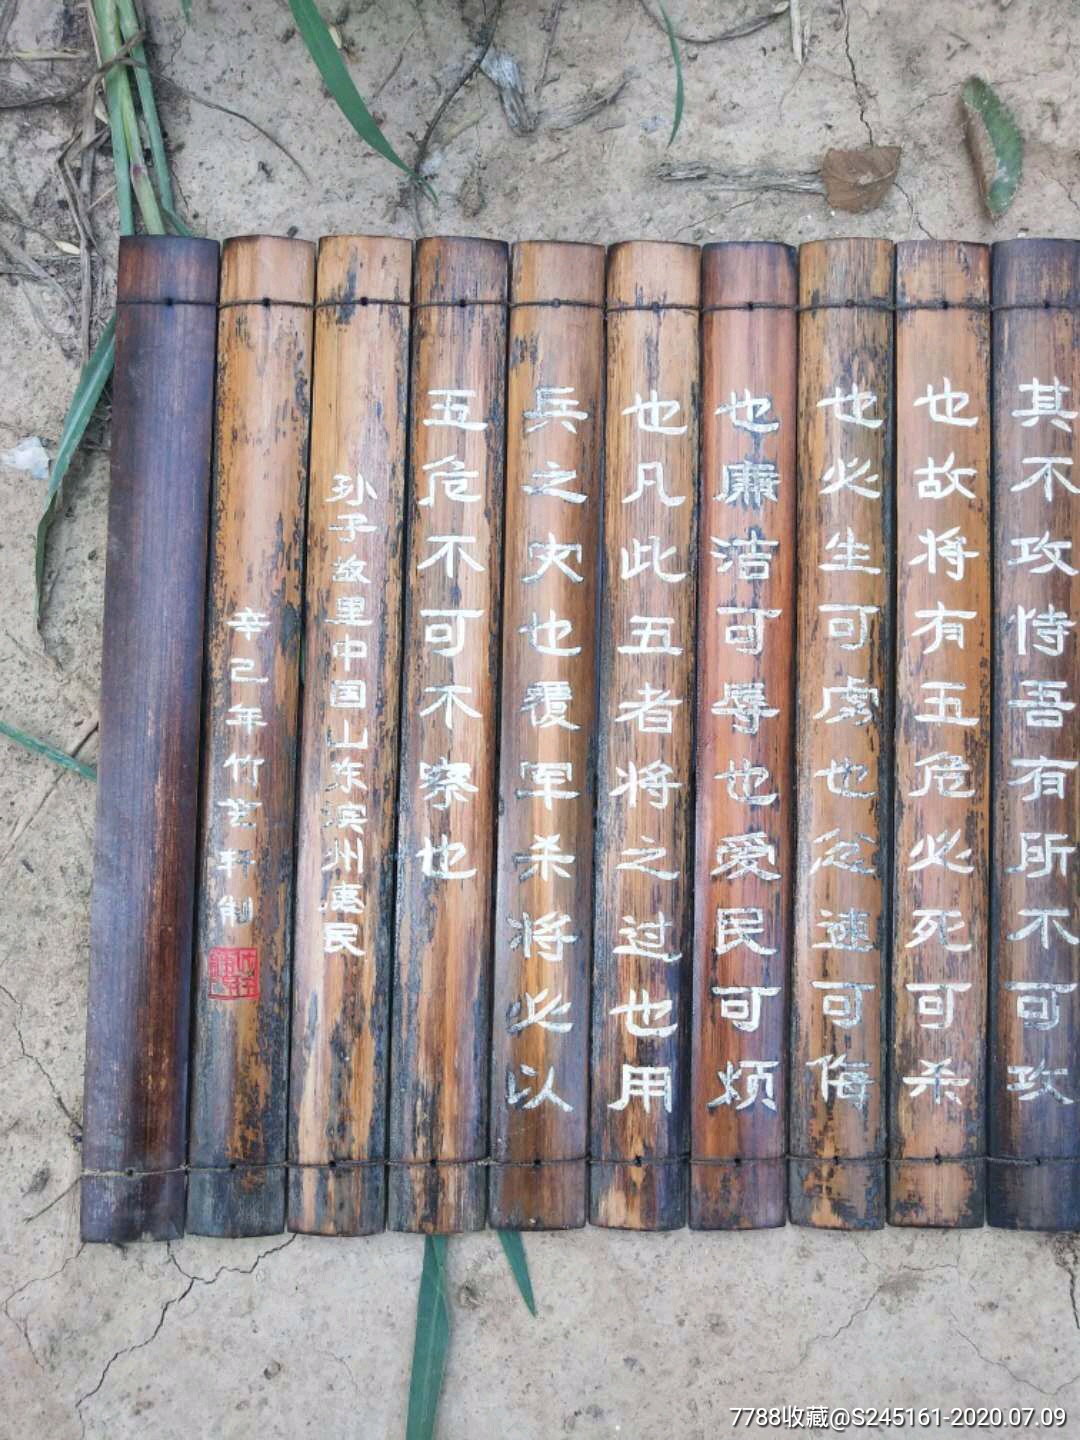 其不攻恃吾有所不可攻
也故将有五危必死可杀
也必生可虏也忿速可侮
也廉洁可辱也爱民可烦
也凡此五者将之过也用
兵之灾也覆军杀将必以
五危不可不察也
孙子故里中国山东滨州惠民
辛己年竹艺轩制
7788收藏@S245161-2020.07.09